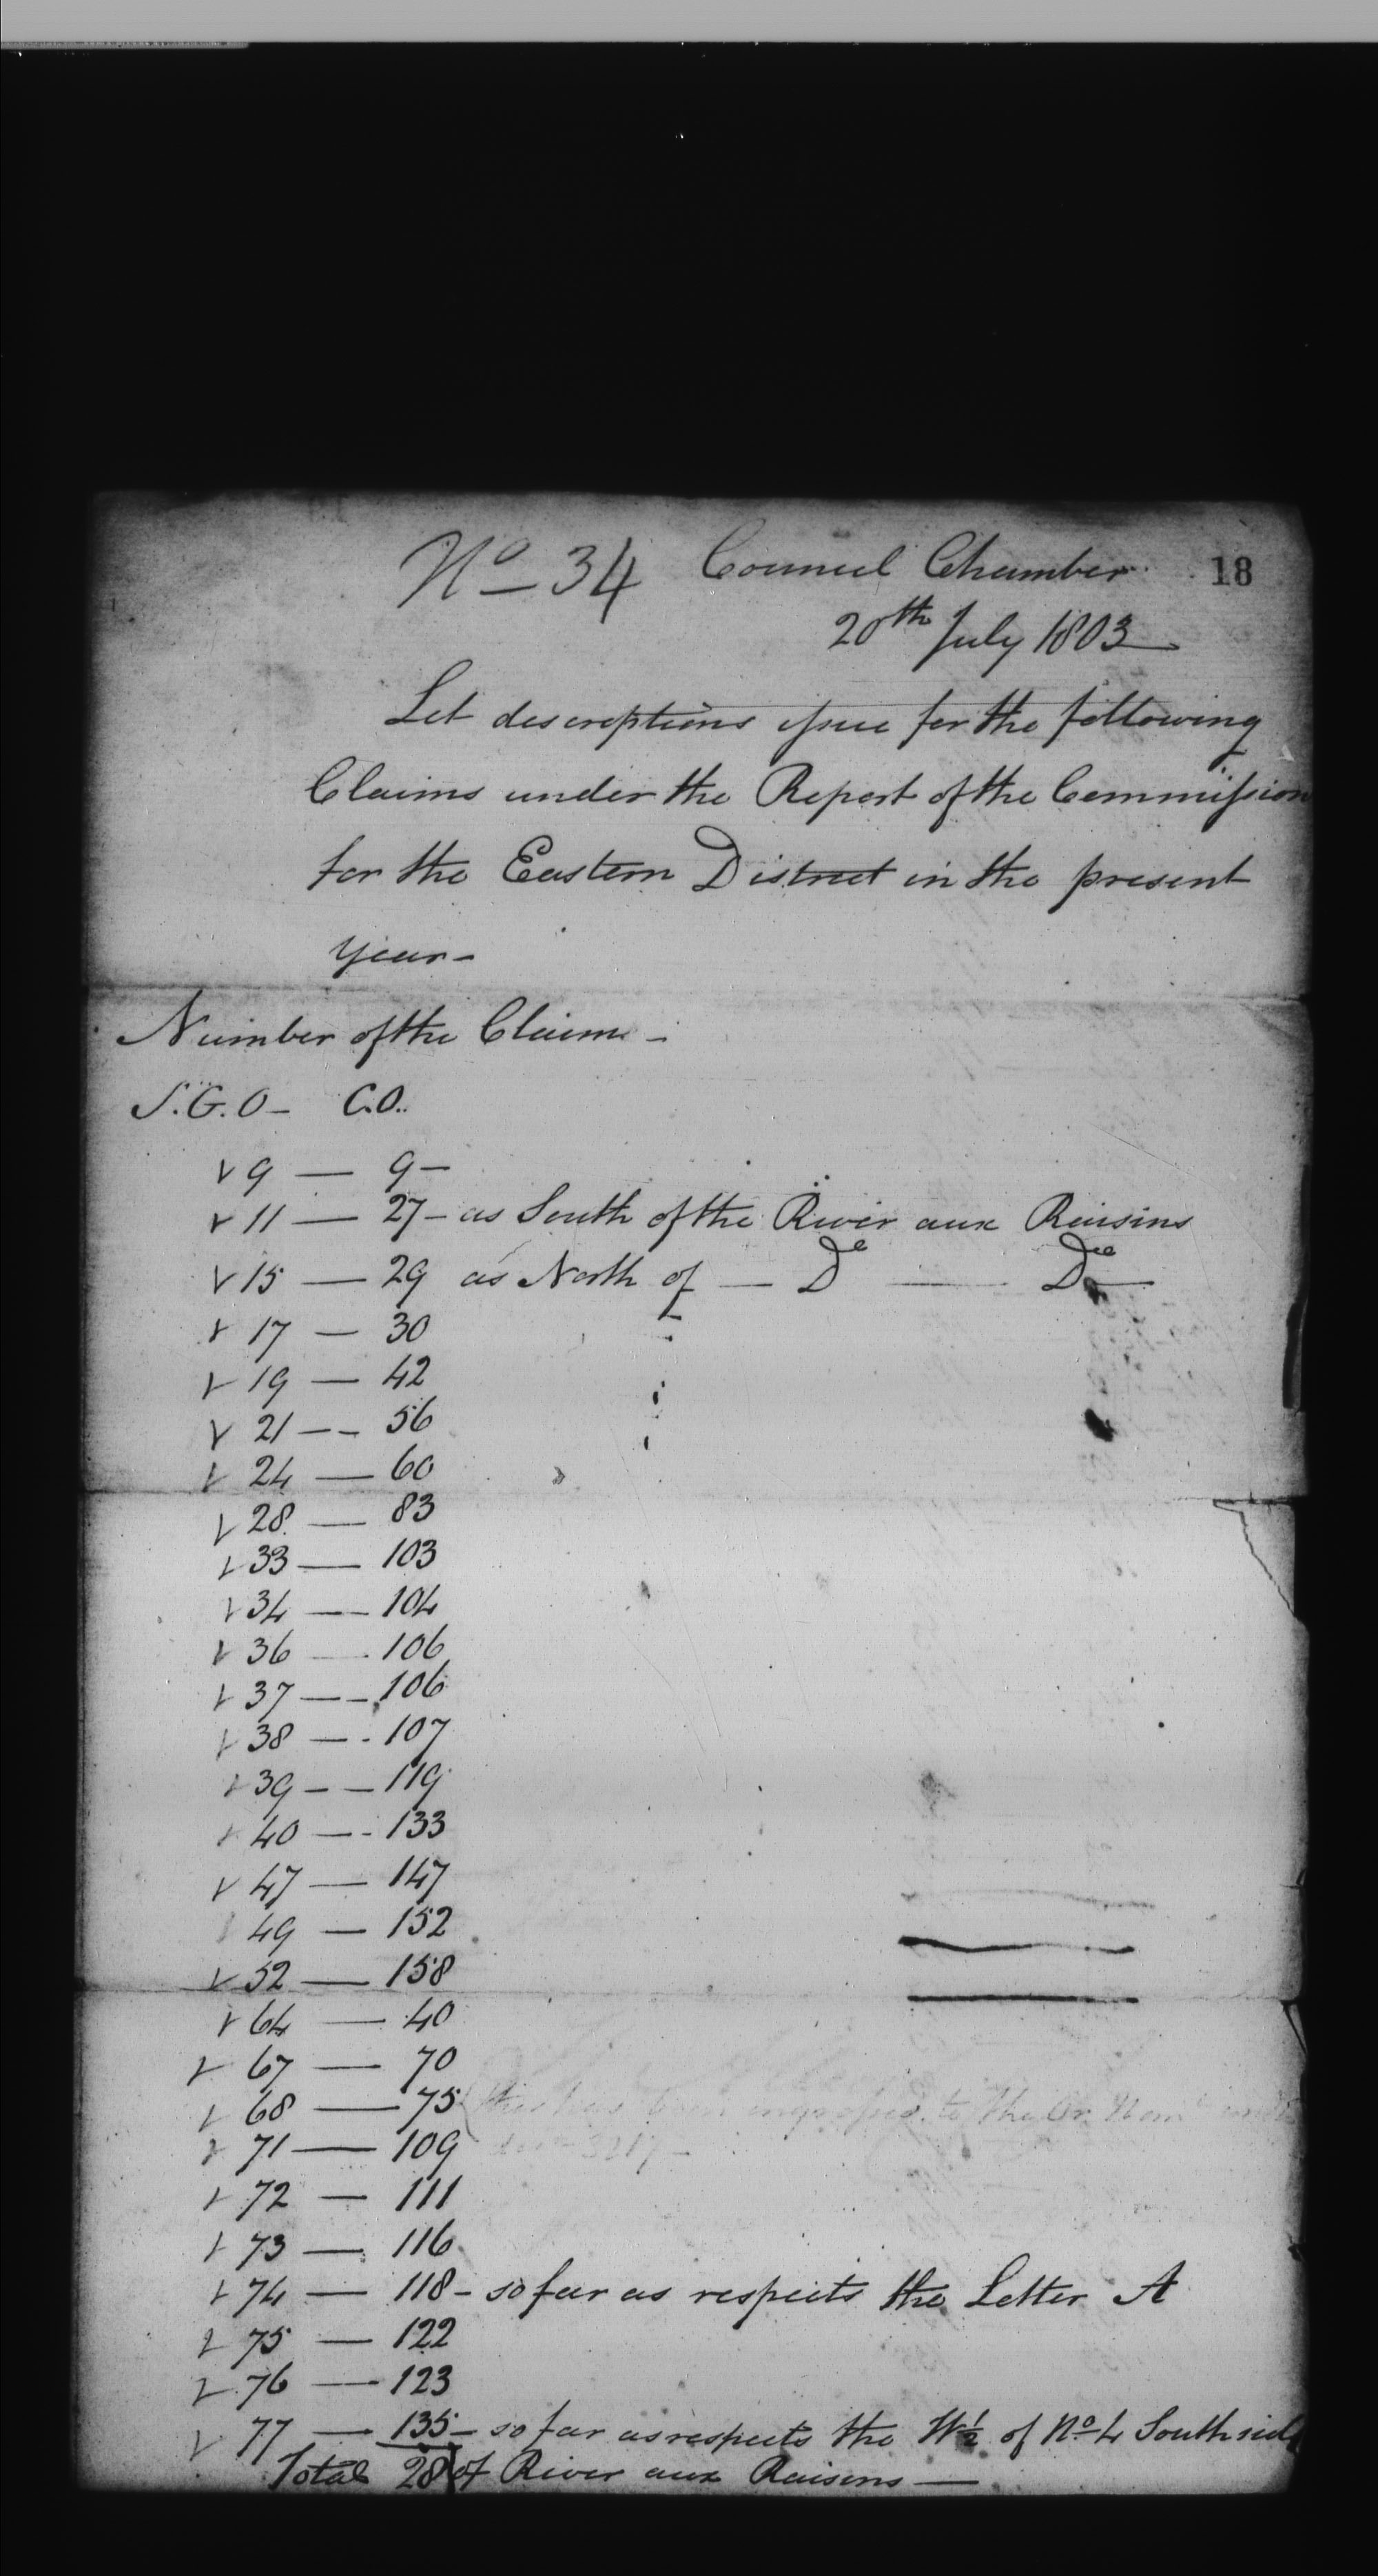 No 34 Council Chamber 18
20th July 1803
Let descriptions issue for the following
Claims under the Report of the Commission
for the Eastern District in the present
year -
Number of the Claims -
S.G.O - C.O..
✓ 9 — 9 -
✓ 11 — 27 - as South of the River aux Raisins
✓ 15 — 29 as North of — Do — Do
✓ 17 — 30
✓ 19 — 42
✓ 21 — 56
✓ 24 — 60
✓ 28 — 83
✓ 33 — 103
✓ 34 — 104
✓ 36 — 106
✓ 37 — 106
✓ 38 — 107
✓ 39 — 119
✓ 40 — 133
✓ 47 — 147
✓ 49 — 152
✓ 52 — 158
✓ 64 — 40
✓ 67 — 70
✓ 68 — 75 this has been to the
✓ 71 — 109
✓ 72 — 111
✓ 73 — 116
✓ 74 — 118 - so far as respects the Letter A
✓ 75 — 122
✓ 76 — 123
✓ 77 — 135 - so far as respects the W½ of No 4 South side
Total 28 of River aux Raisins —